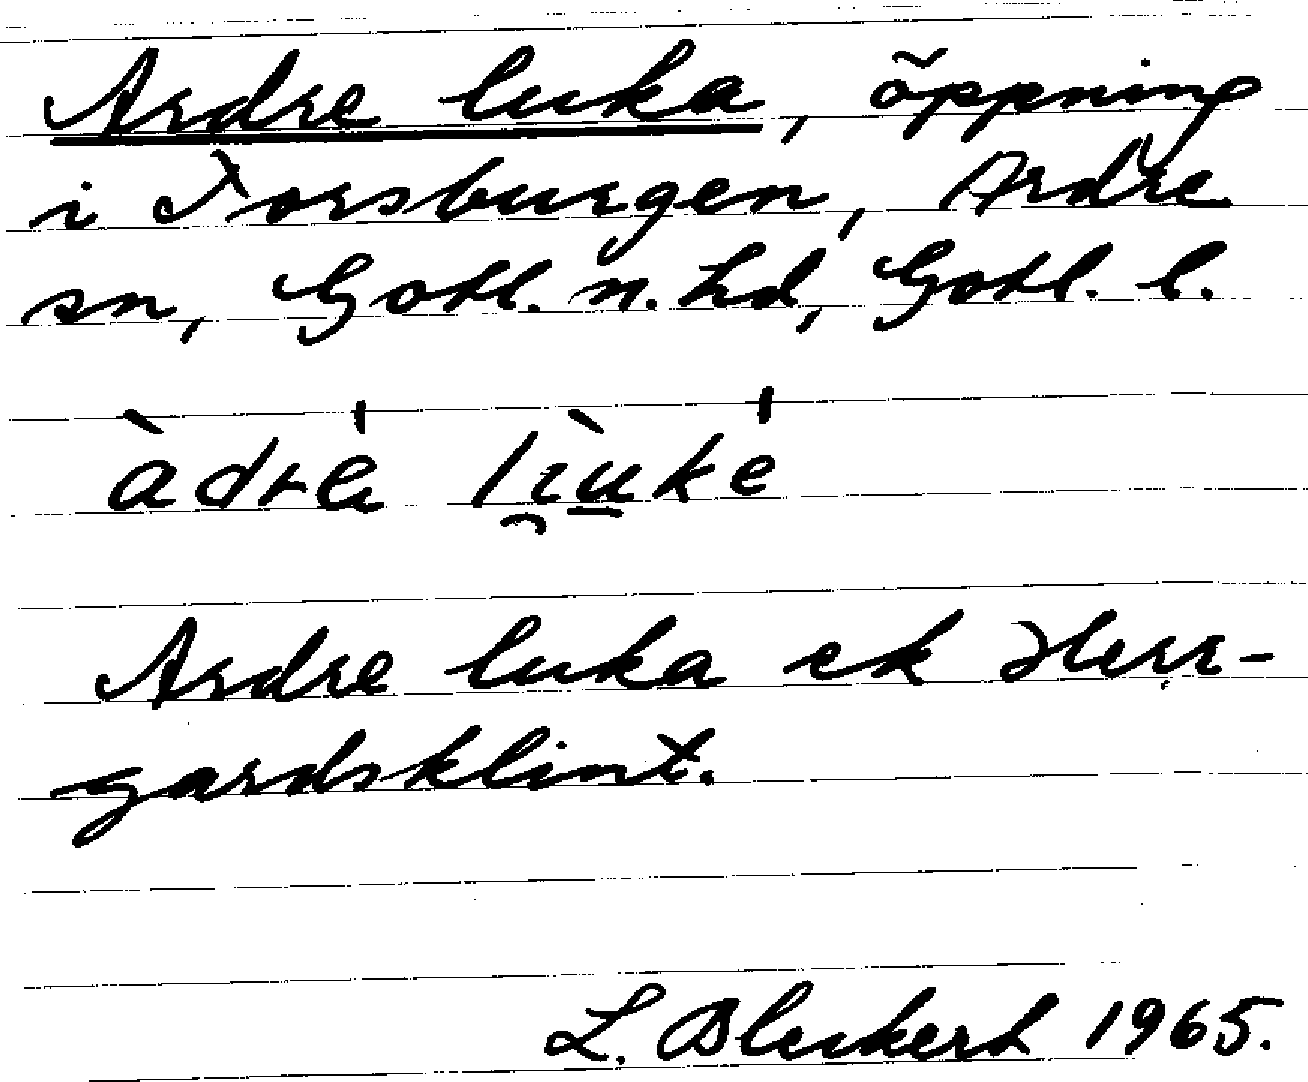 Ardre luka, öppning
i Torsburgen, Ardre
sn, Gotl. n. hd, Gotl. l.
Ardre luka ek Herr-
gardsklint.
L. Blukert 1965.